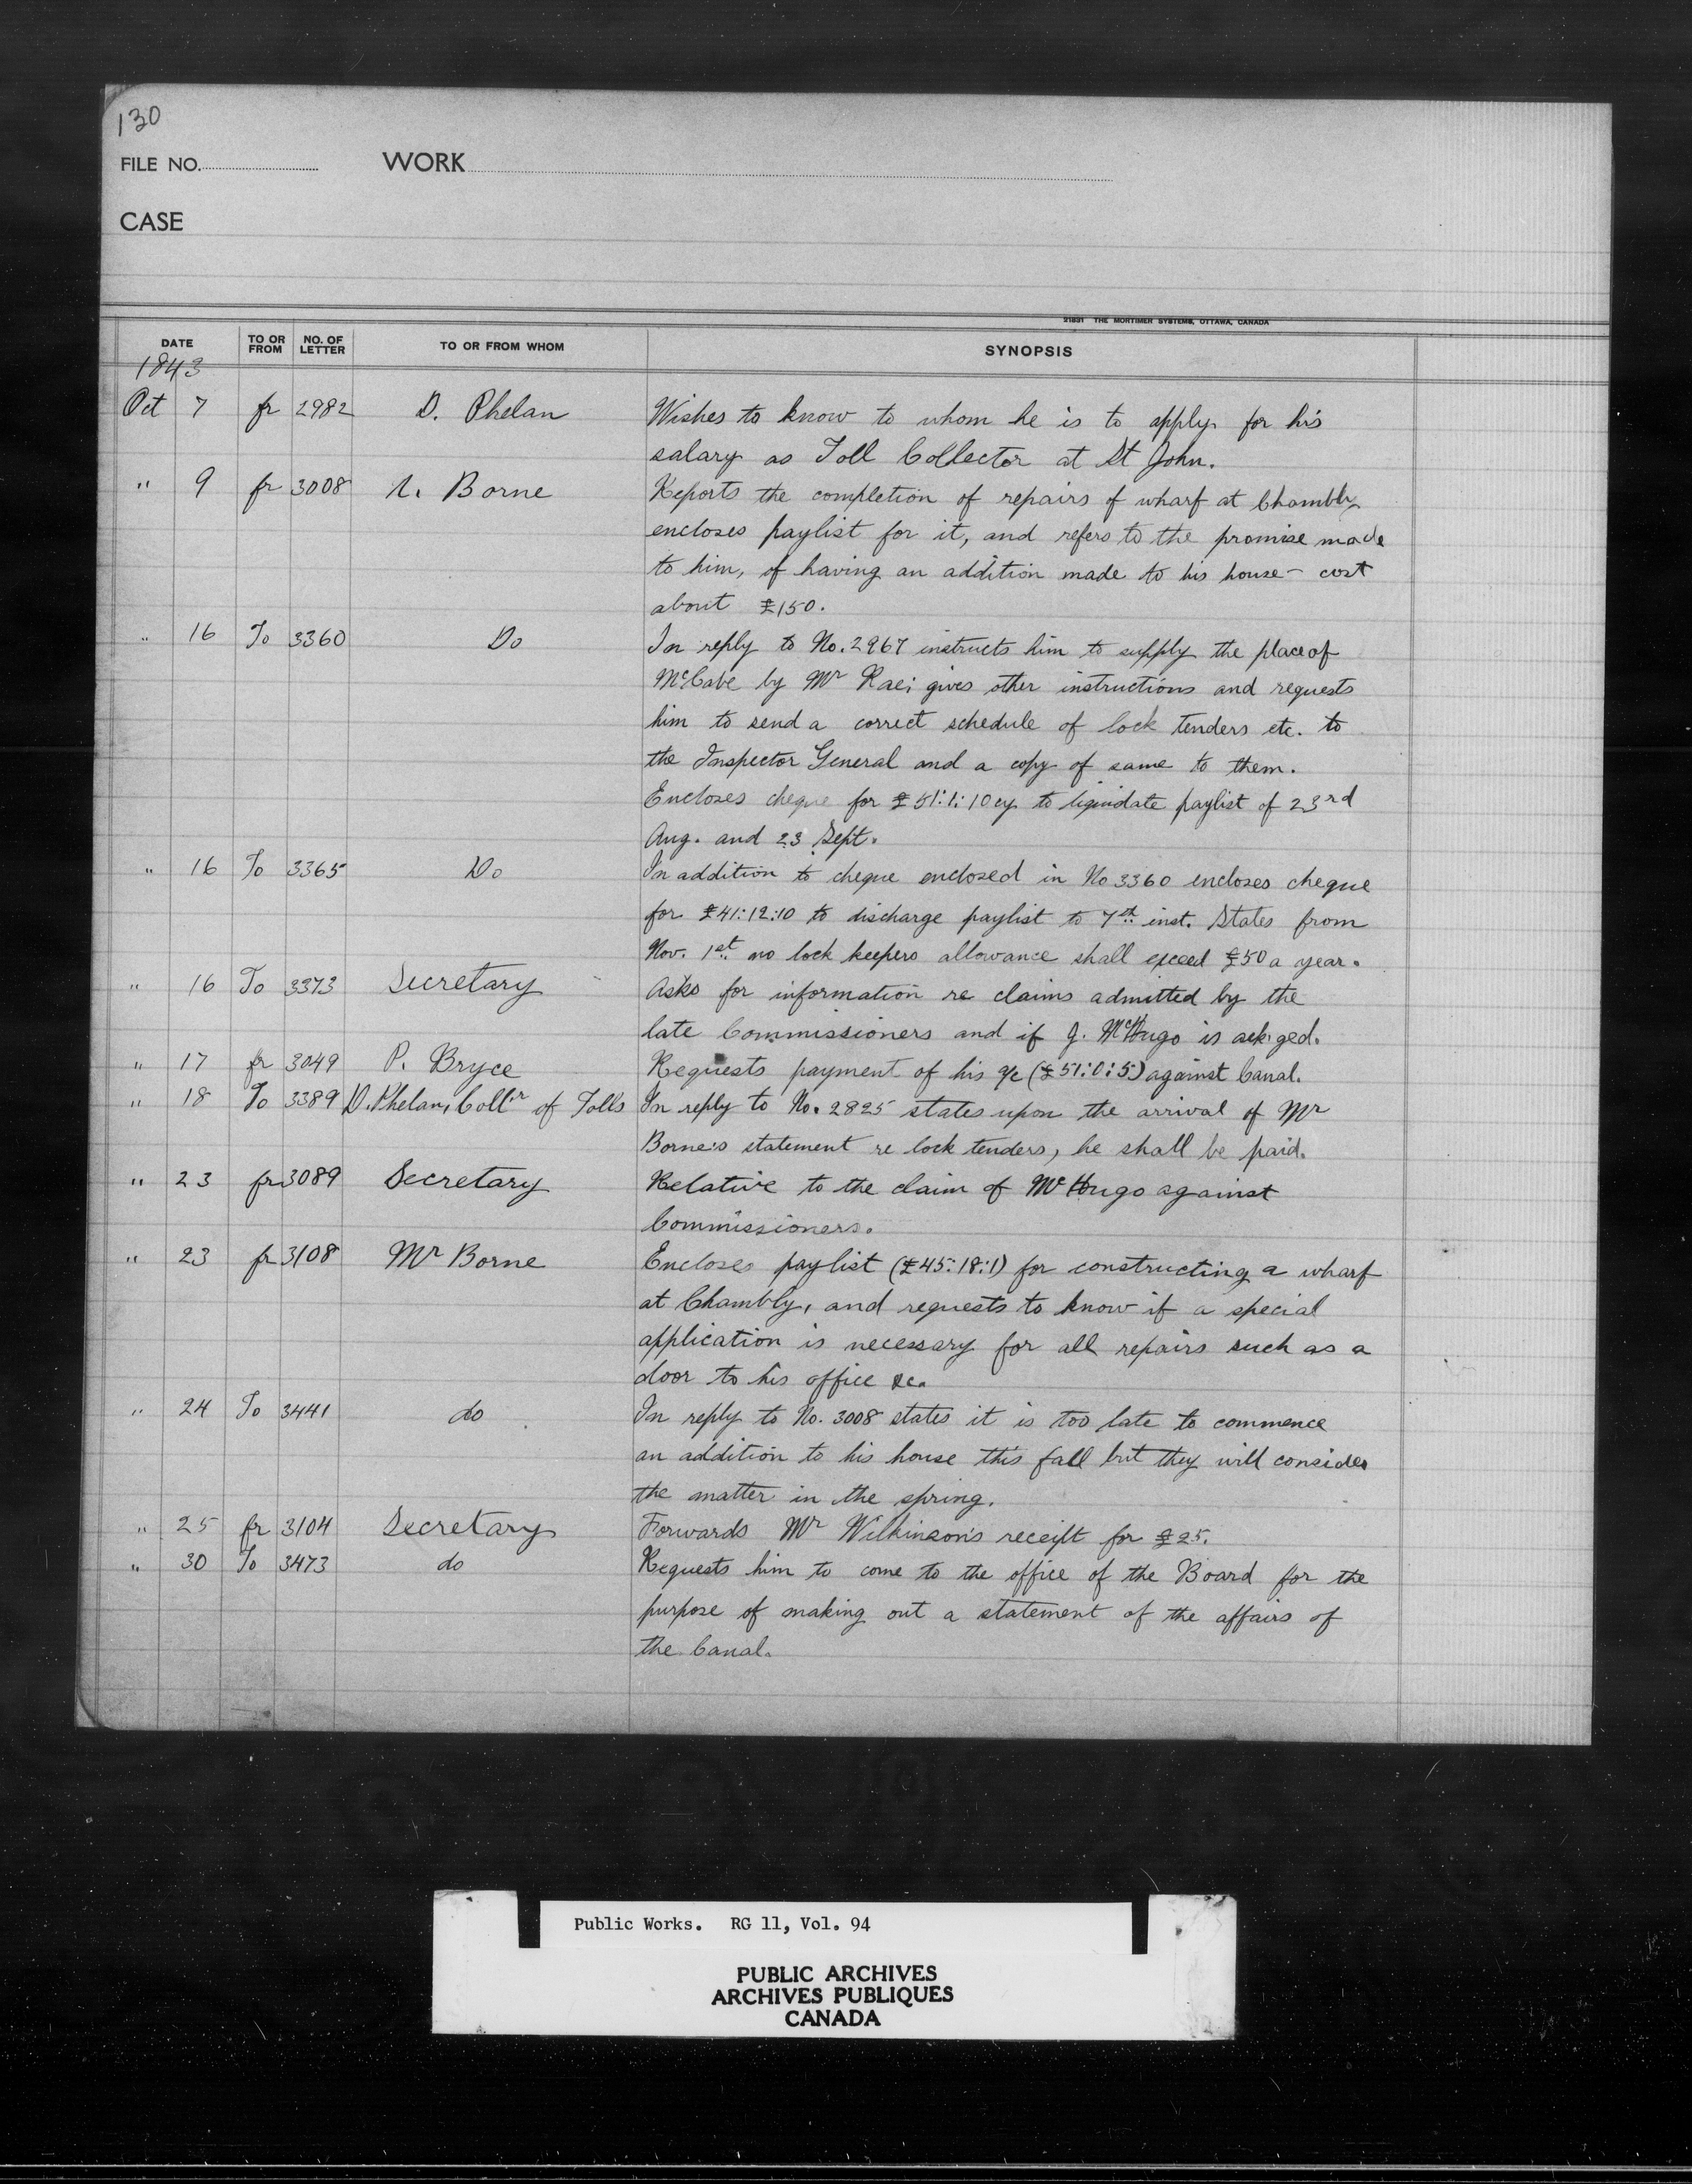 130
FILE NO. WORK
CASE
21831 THE MORTIMER SYSTEMS, OTTAWA, CANADA
DATE TO OR FROM NO. OF LETTER TO OR FROM WHOM SYNOPSIS
1843
Oct 7 fr 2982 D. Phelan Wishes to know to whom he is to apply for his
salary as Toll Collector at St John.
" 9 fr 3008 Borne Reports the completion of repairs of wharf at Chambly
encloses paylist for it, and refers to the promise made
to him, of having an addition made to his house - cost
about £150.
" 16 To 3360 Do In reply to No. 2967 instructs him to supply the place of
McCabe by Mr Rae; gives other instructions and requests
him to send a correct schedule of lock tenders etc. to
the Inspector General and a copy of same to them.
Encloses cheque for £51:1:10 cy to liquidate paylist of 23rd
Aug. and 23 Sept.
" 16 To 3365 Do In addition to cheque enclosed in No 3360 encloses cheque
for £41:12:10 to discharge paylist to 7th inst. States from
Nov. 1st no lock keepers allowance shall exceed £50 a year.
" 16 To 3373 Secretary Asks for information re claims admitted by the
late Commissioners and if J. McHugo is
" 17 fr 3049 P. Bryce Requests payment of his a/c (£51:0:5) against Canal.
" 18 To 3389 D. Phelan, Collr of Tolls In reply to No. 2825 states upon the arrival of Mr
Borne's statement re lock tenders, he shall be paid.
" 23 fr 3089 Secretary Relative to the claim of McHugo against
Commissioners.
" 23 fr 3108 Mr Borne Encloses paylist (£45:18:1) for constructing a wharf
at Chambly, and requests to know if a special
application is necessary for all repairs such as a
door to his office &c.
" 24 To 3441 do In reply to No. 3008 states it is too late to commence
an addition to his house this fall but they will consider
the matter in the spring.
" 25 fr 3104 Secretary Forwards Mr Wilkinson's receipt for £25.
" 30 To 3473 do Requests him to come to the office of the Board for the
purpose of making out a statement of the affairs of
the Canal.
Public Works. RG 11, Vol. 94
PUBLIC ARCHIVES
ARCHIVES PUBLIQUES
CANADA